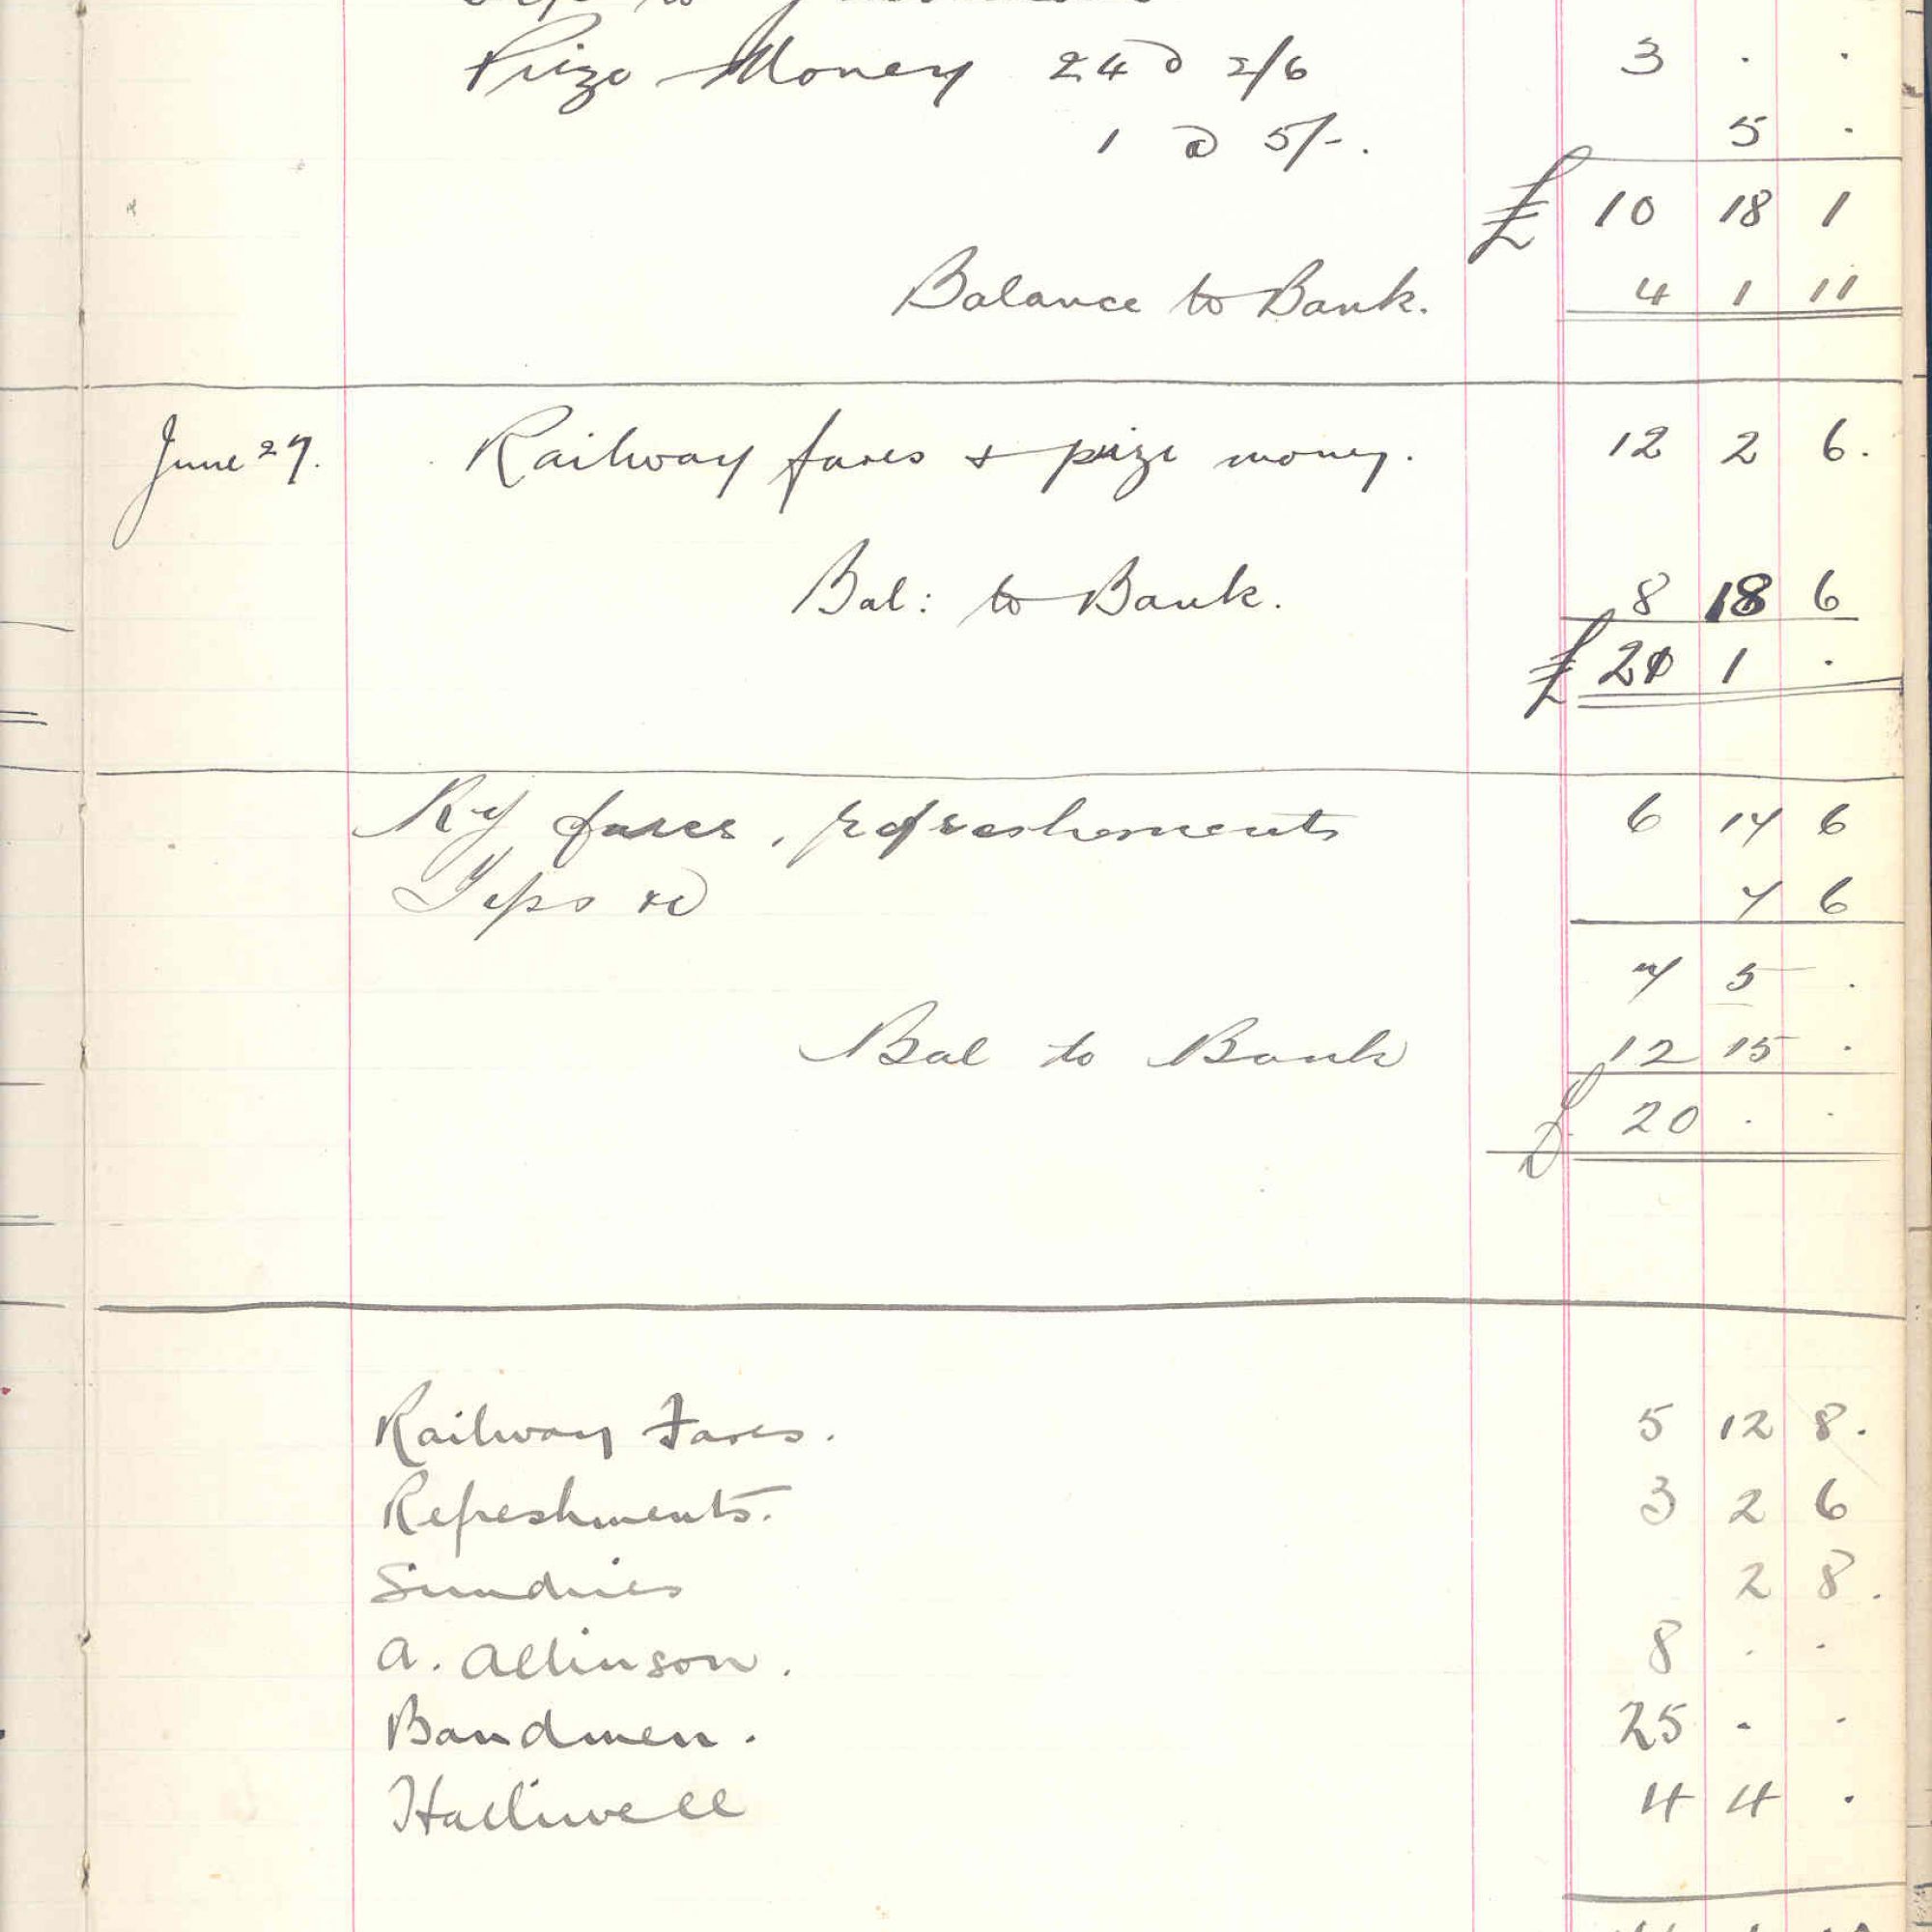 Prize Money 24 @ 2/6 3 . .
1 @ 5/-. 5 .
£ 10 18 1
Balance to Bank. 4 1 11
June 27. Railway fares & prize money. 12 2 6.
Bal: to Bank. 8 18 6
£ 21 1 .
Ry fares, refreshments 6 17 6
Tips &c 7 6
7 5 .
Bal to Bank 12 15 .
£ 20 . .
Railway Fares. 5 12 8.
Refreshments. 3 2 6
Sundries 2 8.
A. Allinson. 8 . .
Bandmen. 25 . .
Halliwell 4 4 .